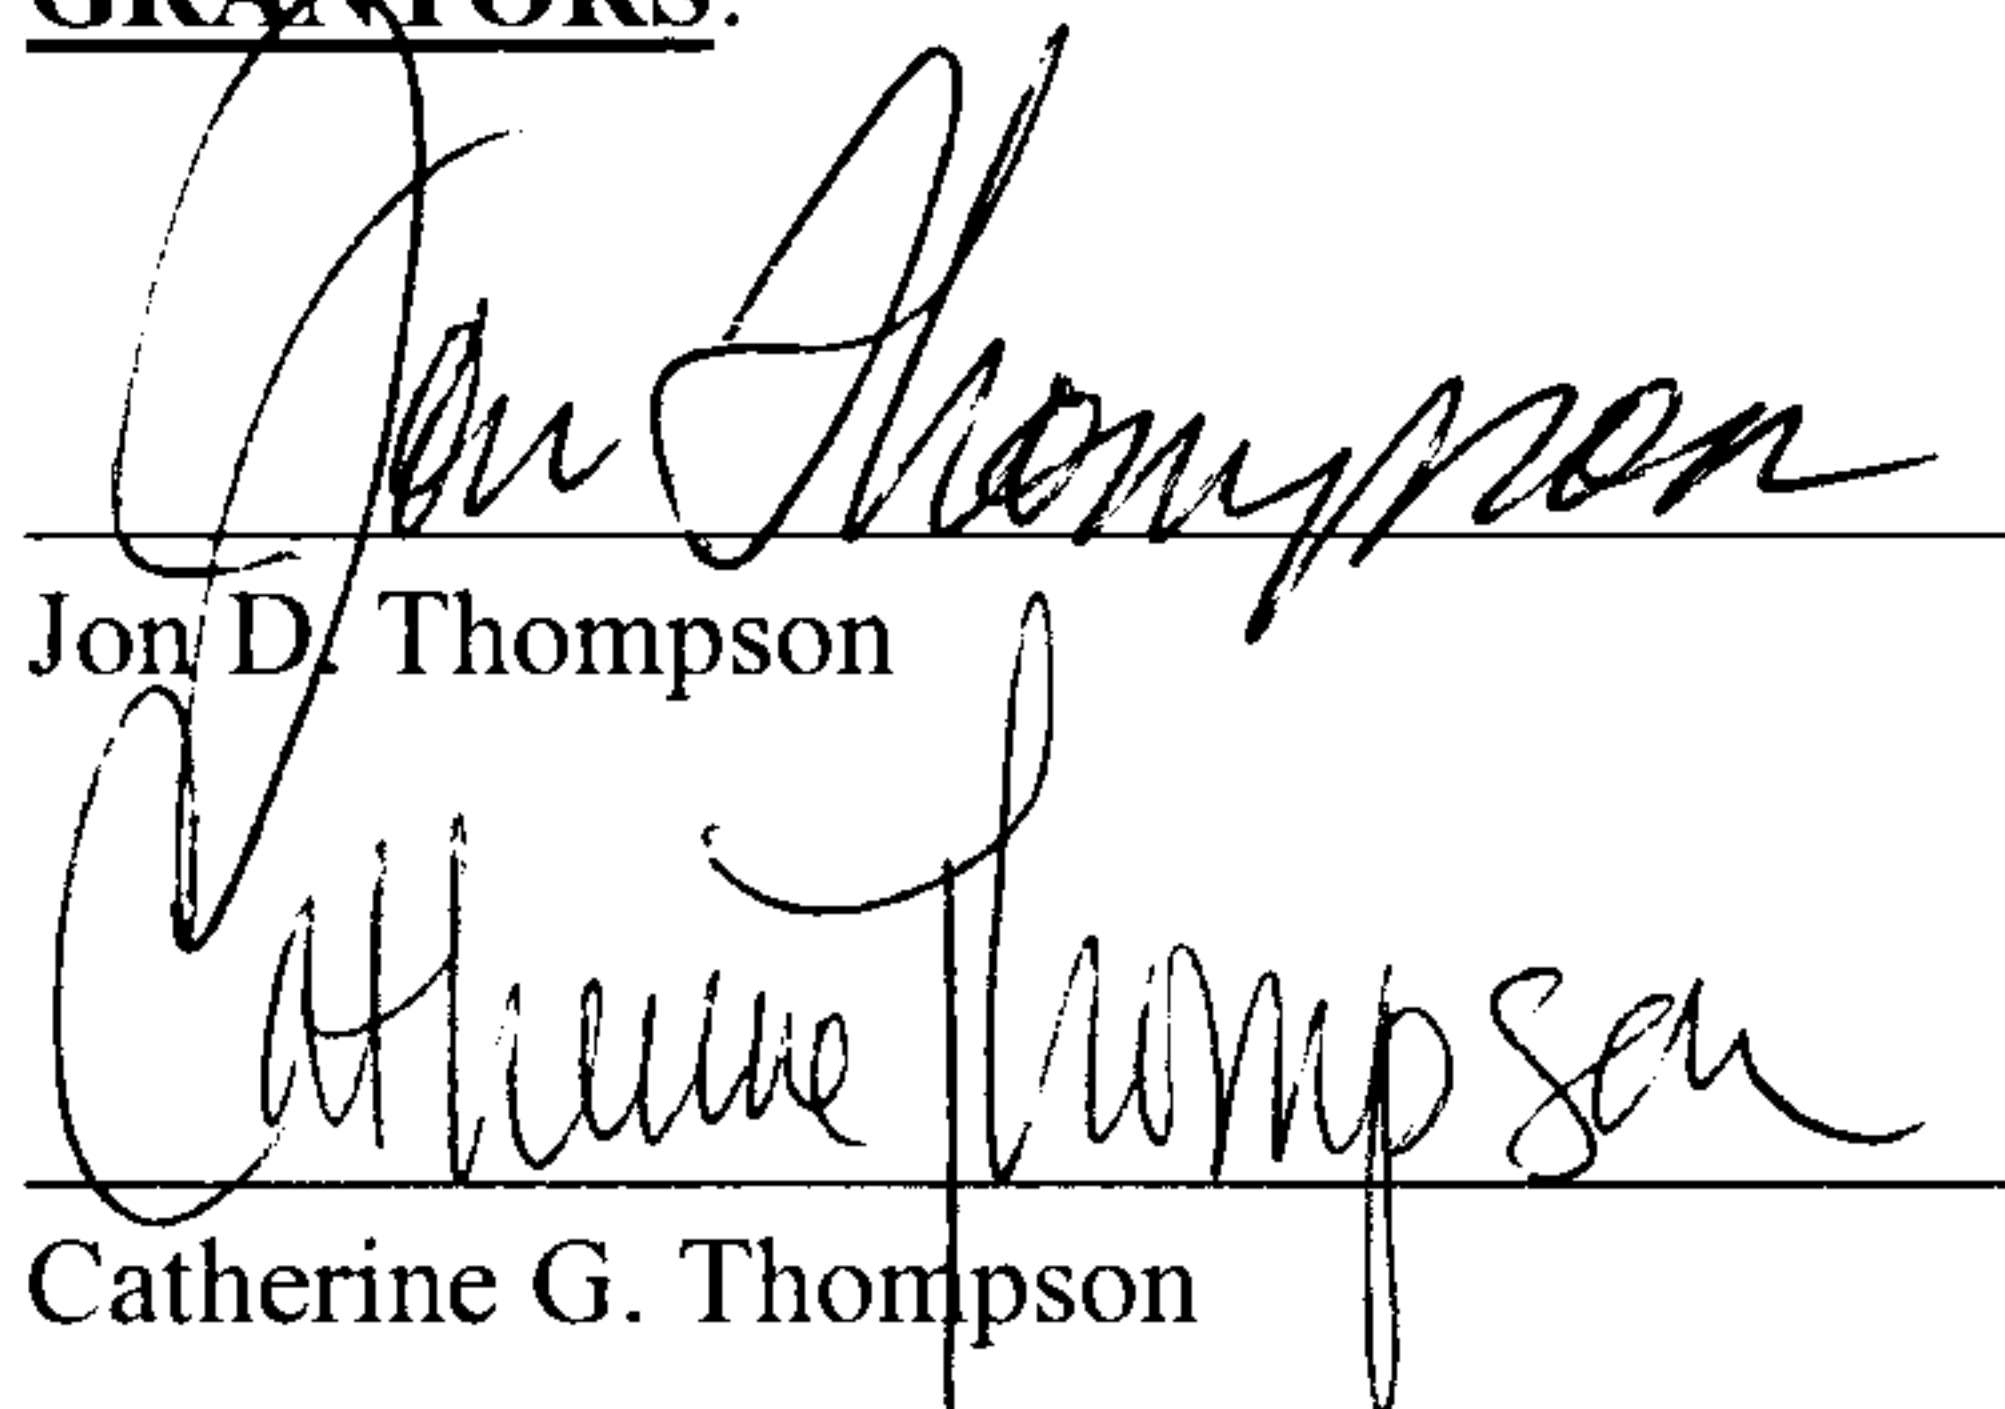 GRANTORS:
Jon Thompson
Jon D. Thompson
Catherine Thompson
Catherine G. Thompson